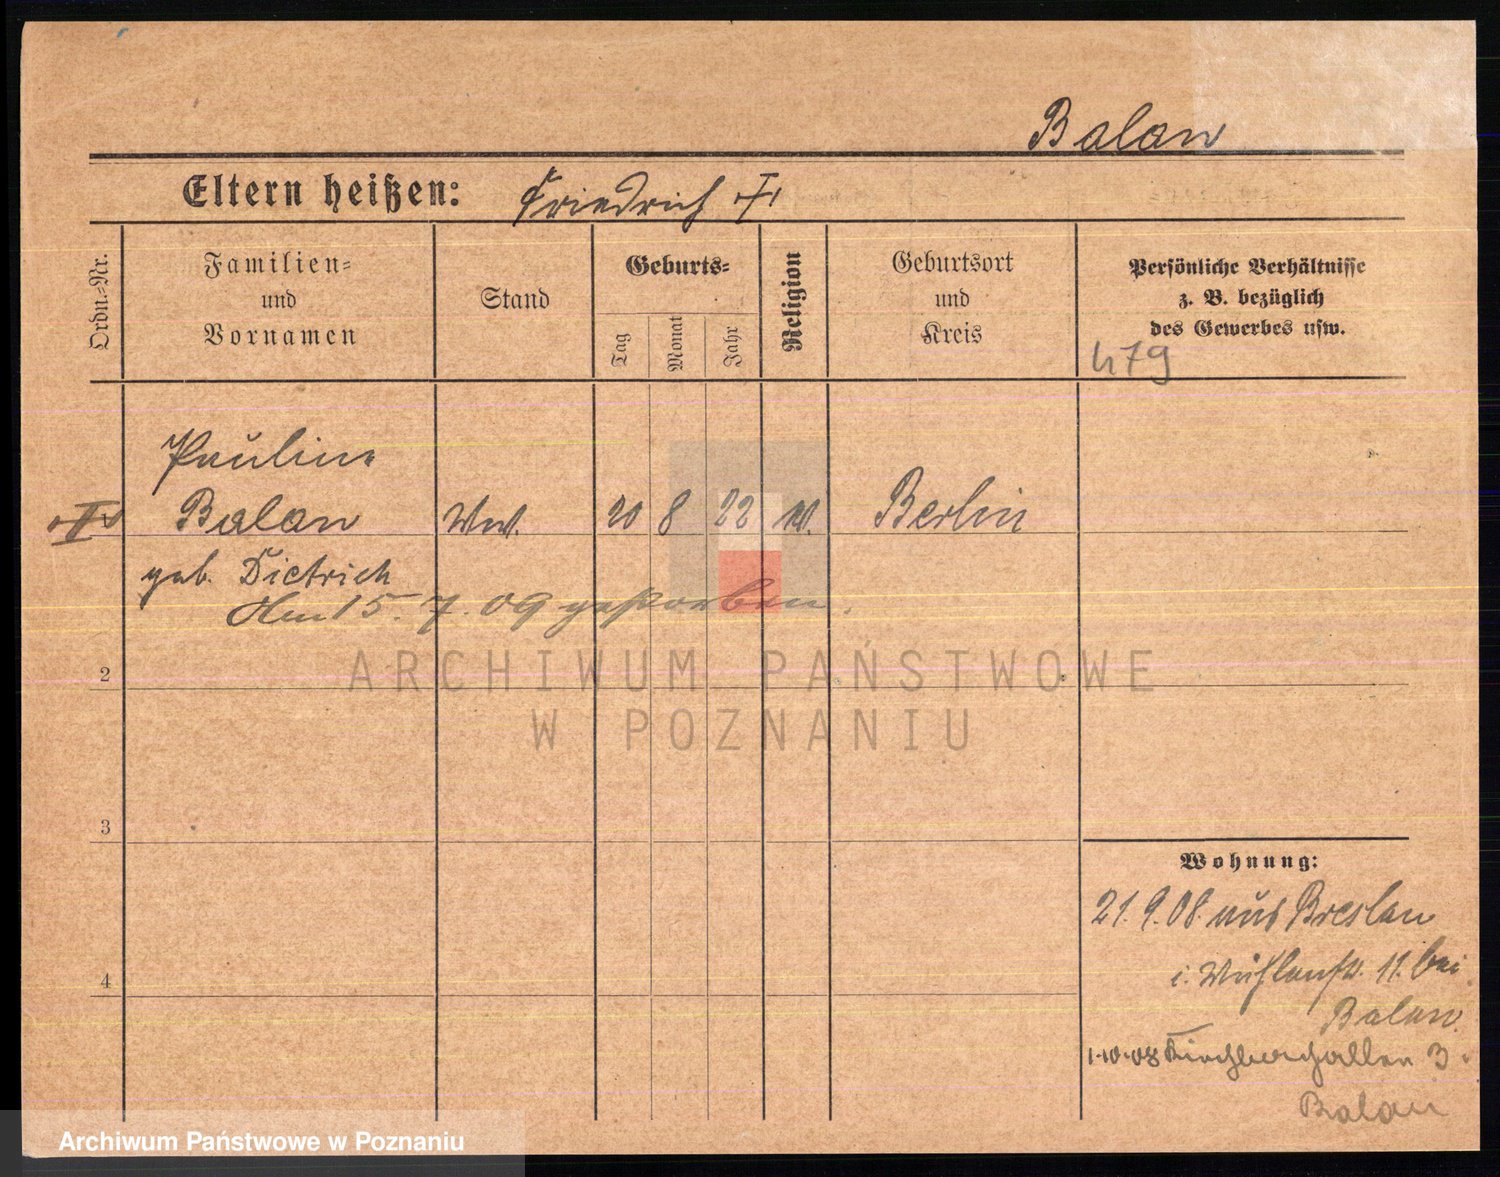 Balan
Eltern heißen: Friedrich †
Ordn.=Nr.
Familien=
und
Vornamen
Stand
Geburts=
Tag
Monat
Jahr
Religion
Geburtsort
und
Kreis
Persönliche Verhältnisse
z. B. bezüglich
des Gewerbes usw.
479
Pauline
Balan Ww. 20 8 22 Berlin
geb. Dietrich
Am 15. 7. 09 gestorben.
2
3
4
Wohnung:
21.9.08 aus Breslau
i. Mühlenstr. 11. bei
Balan.
1.10.08 3
Balan
ARCHIWUM PAŃSTWOWE
W POZNANIU
Archiwum Państwowe w Poznaniu